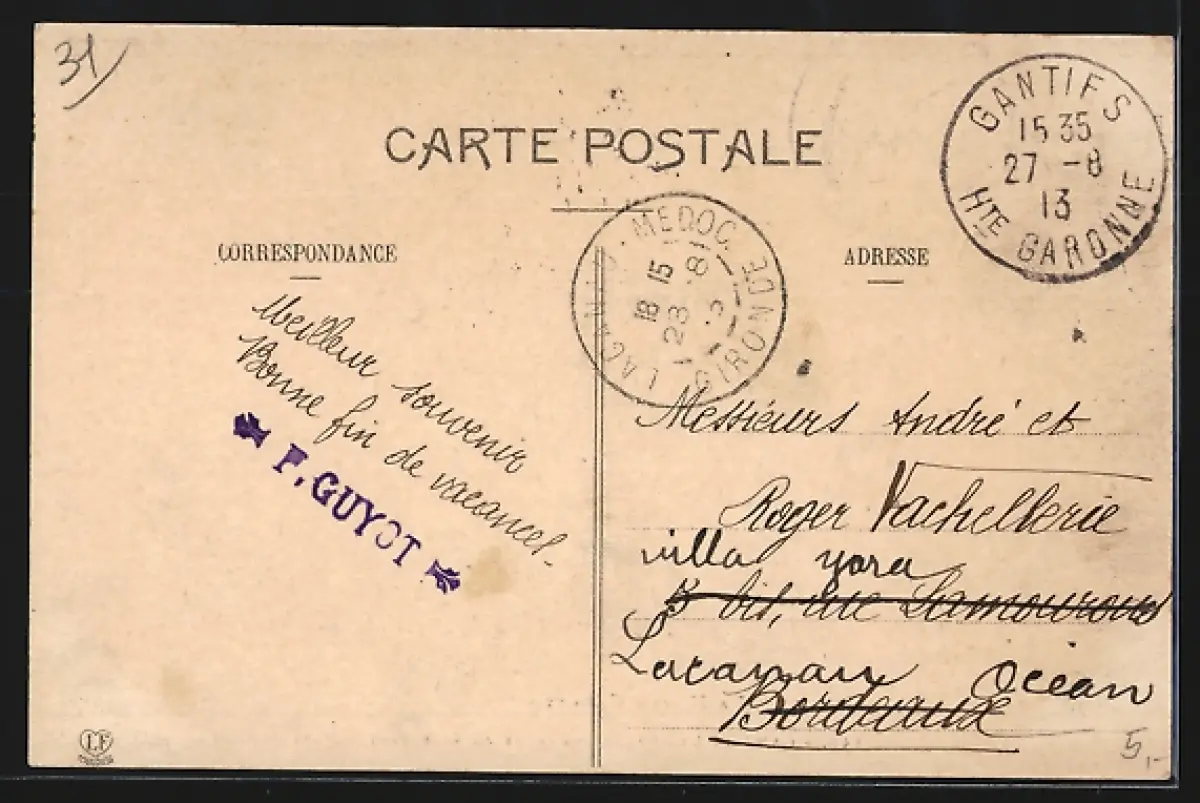 31
CARTE POSTALE
GANTIES
15 35
27 -8
13
HTE GARONNE
LACANAU MEDOC
18 15
28 - 8
GIRONDE
CORRESPONDANCE
ADRESSE
Meilleur souvenir
Bonne fin de vacances.
F. GUYOT
Messieurs André et
Roger Vachellerie
villa yara
5 bis, rue Lamourous
Lacanau Océan
Bordeaux
LF
5,-